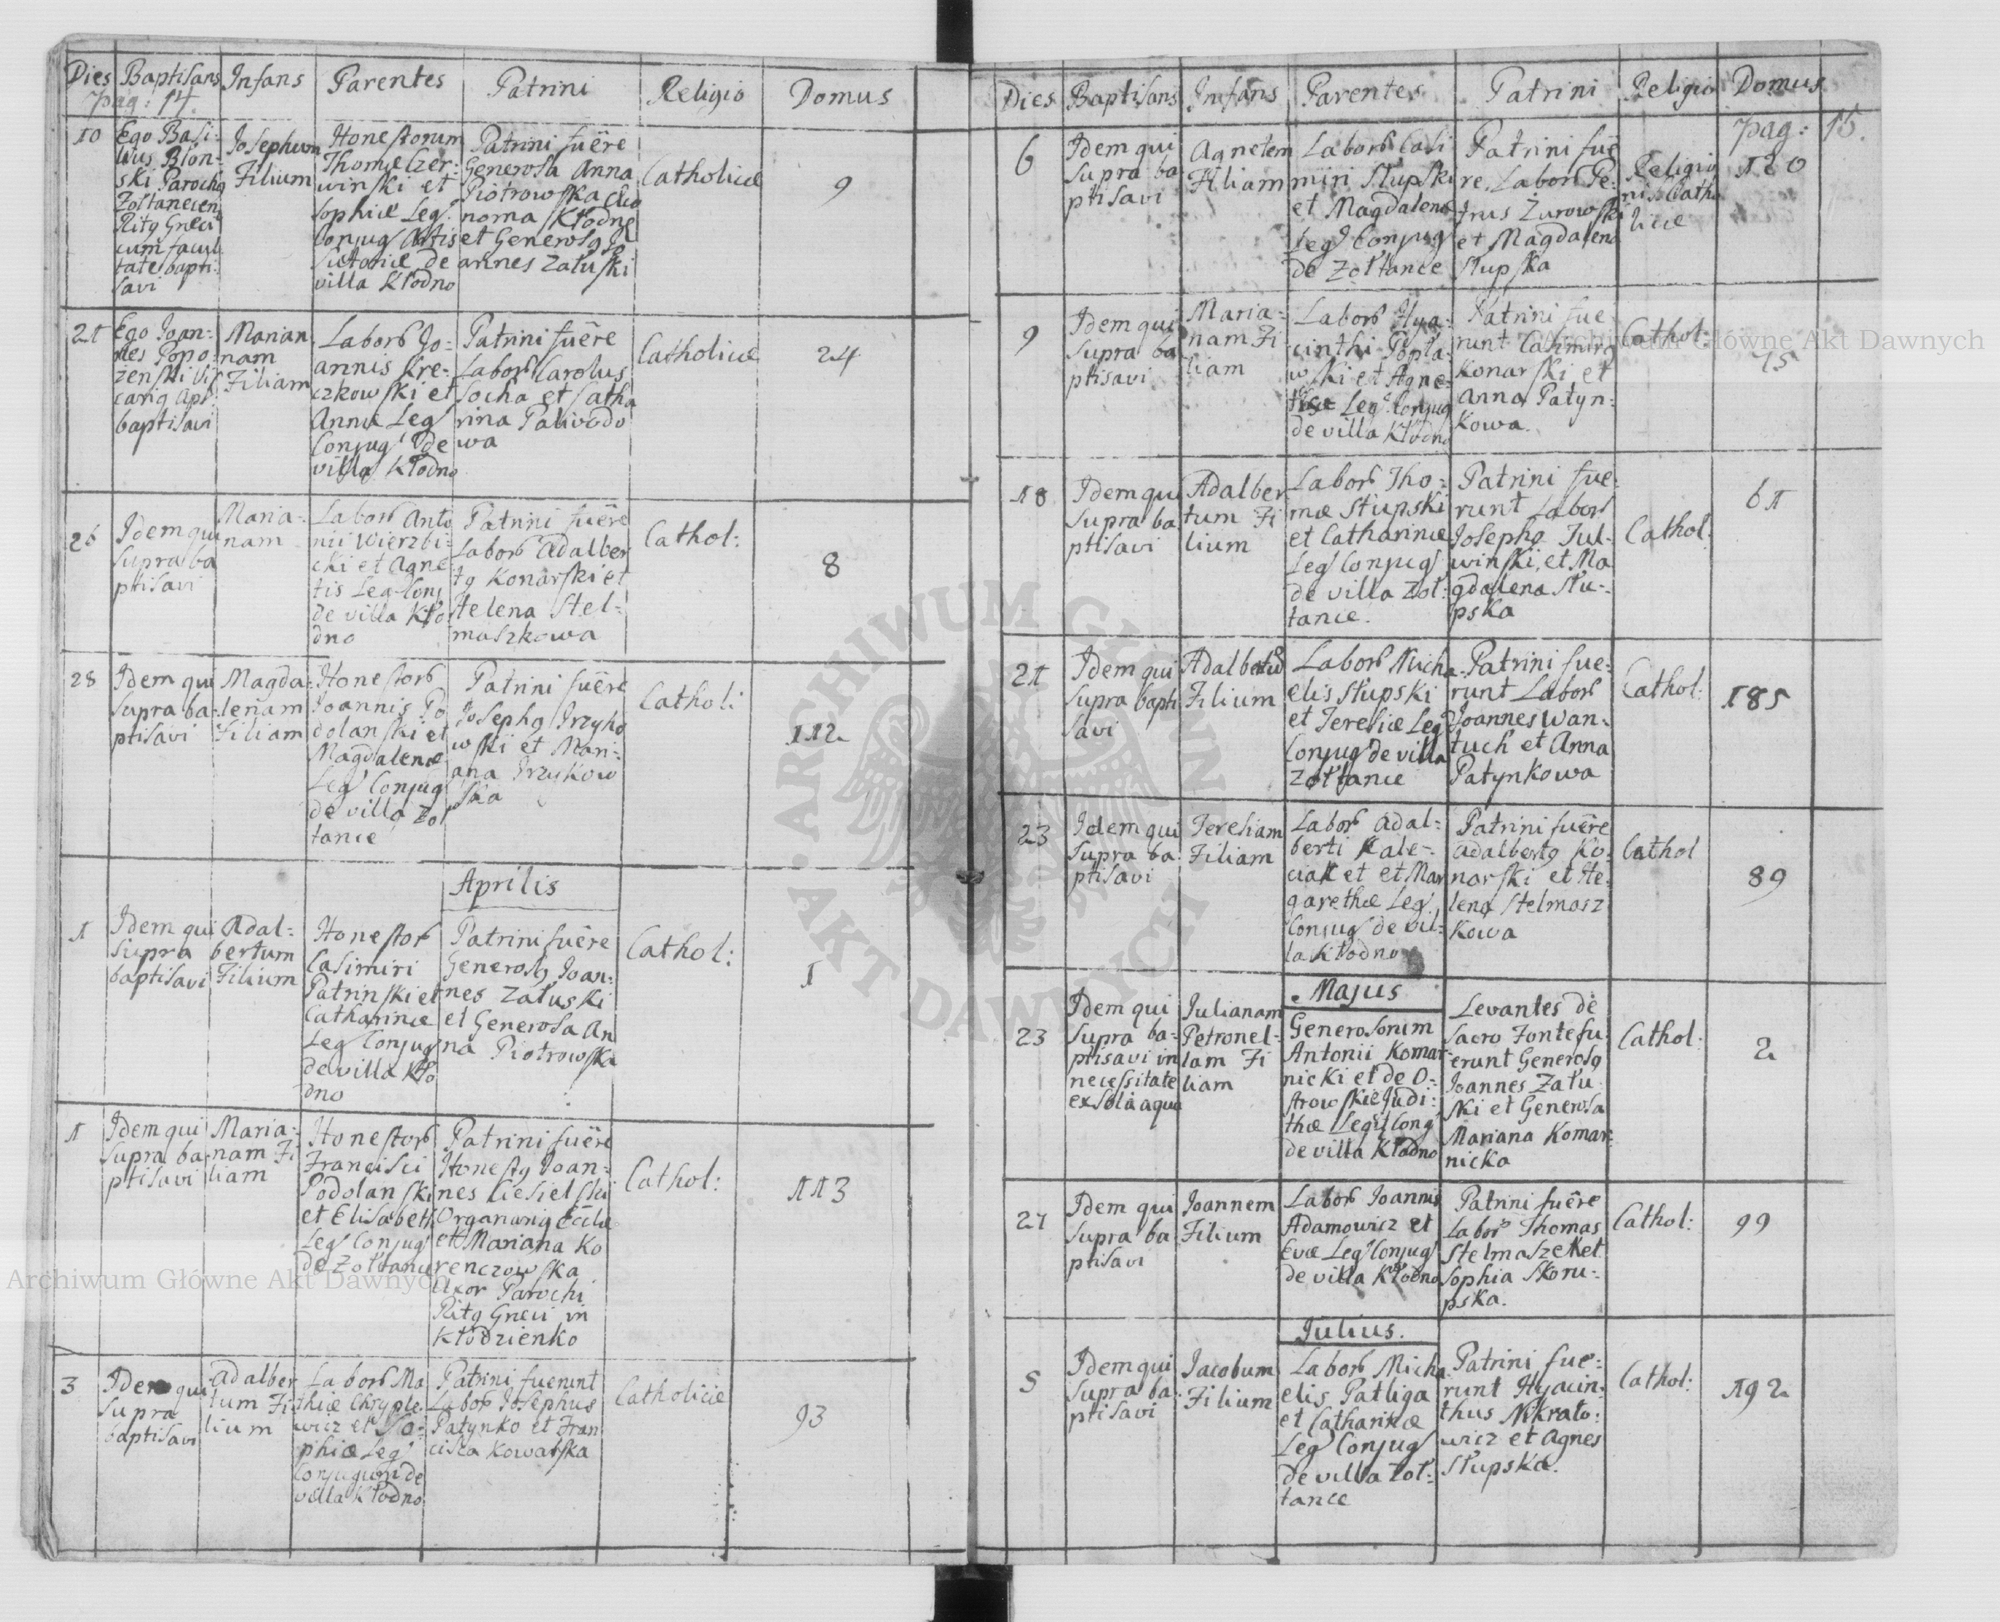 Dies Baptisans Infans Parentes Patrini Religio Domus
pag: 14.
10
Ego Basi-
lius Blon-
ski Parochq
Zoltanecen
Ritq Greci
cum facul
tate bapti-
savi
Josephum
Filium
Honestorum
Thomæ Czer-
winski et
Sophiæ Leg:
Conjug Artis
Sutoriæ de
villa Kłodno
Patrini fuêre
Generosa Anna
Piotrowska Eko
noma Kłodne
et Generosq Jo
annes Załuski
Catholicæ
9
21
Ego Joan-
nes Popo
zenski Vi
cariq
baptisavi
Marian
nam
Filiam
Labors Jo-
annis Kre-
czkowski et
Annæ Leg
Conjug de
villa Kłodno
Patrini fuêre
Labors Carolus
Socha et Catha
rina Paliwodo
wa
Catholicæ
24
26
Idem qui
supra ba
ptisavi
Maria-
nam
Labors Anto
nii Wierzbi-
cki et Agne-
tis Leg Conj
de villa Kło-
dno
Patrini fuêre
Labors Adalber
tq Konarski et
Helena Stel-
maszkowa
Cathol:
8
28
Idem qui
supra ba-
ptisavi
Magda-
lenam
Filiam
Honestors
Joannis Po
dolanski et
Magdalenæ
Leg Conjug
de villa Zoł
tance
Patrini fuêre
Josephq Przyko
wski et Mari-
ana Przykow
ska
Cathol:
112
Aprilis
1
Idem qui
supra
baptisavi
Adal-
bertum
Filium
Honestor
Casimiri
Patrinski et
Catharinæ
Leg Conjug
de villa Kło
dno
Patrini fuêre
Generosq Joan-
nes Załuski
et Generosa An
na Piotrowska
Cathol:
1
1
Idem qui
supra ba-
ptisavi
Maria-
nam Fi
liam
Honestors
Francisci
Podolanski
et Elisabeth
Leg Conjug
de Zołtance
Patrini fuêre
Honestq Joan-
nes Kiesielski
Organariq Eccle
et Mariana Ko
renczowska
Uxor Parochi
Ritq Greci in
Kłodzienko
Cathol:
113
3
Idem qui
supra
baptisavi
Adalber
tum Fi
lium
Labors Ma
thiæ Chryple
wicz et So-
phiæ Leg
Conjugum de
villa Kłodno
Patrini fuerunt
Labor Josephus
Patynko et Fran
ciska Kowalska
Catholicæ
93
Dies Baptisans Infans Parentes Patrini Religio Domus
pag: 15.
6
Idem qui
supra ba
ptisavi
Agnetem
Filiam
Labors Casi
miri Słupski
et Magdalenæ
Leg Conjug
de Zołtance
Patrini fuê
re, Labors Pe-
trus Żurowski
et Magdalena
Słupska
Religio
nis Catho
licæ
120
9
Idem qui
supra ba
ptisavi
Maria-
nam Fi
liam
Labors Hya-
cinthi Popła-
wski et Agne-
tis Leg Conjug
de villa Kłodno
Patrini fue-
runt Casimirq
Konarski et
Anna Patyn-
kowa.
Cathol:
75
18
Idem qui
supra ba
ptisavi
Adalber
tum Fi
lium
Labors Tho-
mæ Słupski
et Catharinæ
Leg Conjug
de villa Zoł-
tance.
Patrini fue-
runt Labors
Josephq Tul-
winski, et Ma
gdalena Słu-
pska
Cathol:
61
21
Idem qui
supra bapti
savi
Adalbertus
Filium
Labors Micha
elis Słupski
et Teresiæ Leg
Conjug de villa
Zołtance
Patrini fue-
runt Labors
Joannes Wan-
tuch et Anna
Patynkowa
Cathol:
185
23
Idem qui
supra ba
ptisavi
Teresiam
Filiam
Labors Adal-
berti Kale-
ciak et et Mar
garethæ Leg
Conjug de vil-
la Kłodno
Patrini fuêre
Adalbertq Ko-
narski et He-
lena Stelmasz
kowa
Cathol
89
Majus
23
Idem qui
supra ba-
ptisavi in
necessitate
ex sola aqua
Julianam
Petronel-
lam Fi
liam
Generosorum
Antonii Komar
nicki et de O-
strowskie Judi-
thæ Legit Conj
de villa Kłodno
Levantes de
Sacro Fonte fu-
erunt Generosq
Joannes Zału
ski et Generosa
Mariana Komar
nicka
Cathol:
2
27
Idem qui
supra ba
ptisavi
Joannem
Filium
Labors Joannis
Adamowicz et
Evæ Leg Conjug
de villa Kłodno
Patrini fuêre
Labors Thomas
Stelmaszek et
Sophia Skoru-
pska.
Cathol:
99
Julius.
5
Idem qui
supra ba-
ptisavi
Jacobum
Filium
Labors Micha
elis Patliga
et Catharinæ
Leg Conjug
de villa Zoł-
tance
Patrini fue-
runt Hyacin-
thus Nikrato-
wicz et Agnes
Słupska.
Cathol:
192
Archiwum Główne Akt Dawnych
Archiwum Główne Akt Dawnych
ARCHIWUM GŁÓWNE
AKT DAWNYCH